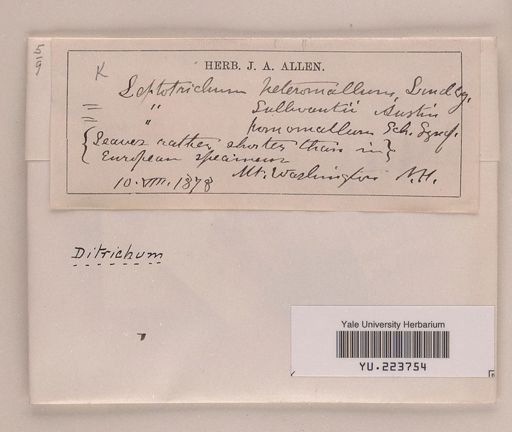 5/9
K
HERB. J. A. ALLEN.
Leptotrichum heteromallum, Lindbg.
= " Sullivantii Austin
= " homomallum Sch. Syn.
{Leaves rather shorter than in}
European specimens
10. VIII. 1878 Mt. Washington N.H.
Ditrichum
Yale University Herbarium
YU.223754